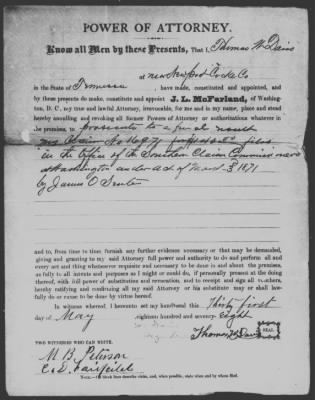 POWER OF ATTORNEY.
Know all Men by these Presents, That I, Thomas W Davis
at near Newport Cocke Co
in the State of Tennessee, have made, constituted and appointed, and
by these presents do make, constitute and appoint J. L. McFarland, of Washington,
D. C., my true and lawful Attorney, irrevocable, for me and in my name, place and stead
hereby annulling and revoking all former Powers of Attorney or authorizations whatever in
the premises, to prosecute to a final result
my Claim No
in the Office of the Southern Claims Commissioners
at Washington under act of March 3 1871
by James O
and to, from time to time, furnish any further evidence necessary or that may be demanded,
giving and granting to my said Attorney full power and authority to do and perform all and
every act and thing whatsoever requisite and necessary to be done in and about the premises,
as fully to all intents and purposes as I might or could do, if personally present at the doing
thereof, with full power of substitution and revocation, and to receipt and sign all vouchers,
hereby ratifying and confirming all my said Attorney or his substitute may or shall lawfully
do or cause to be done by virtue hereof.
In witness whereof I hereunto set my hand and seal this Thirty first
day of May eighteen hundred and seventy eight
Thomas W Davis SEAL
TWO WITNESSES WHO CAN WRITE.
M. B. Peterson
C. D. Fairfield
NOTE.—In blank lines describe claim, and, when possible, state when and by whom filed.